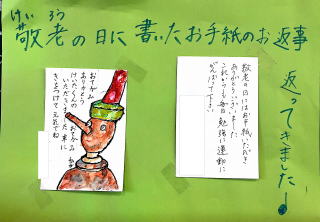 けい ろう
敬老の日に書いたお手紙のお返事
返ってきました♩
おてがみ
ありがとう
けいたくんの
おてがみ
いただきました
車に
きをつけて元気でね
敬老の日にはお手紙いただき
ありがとうございました
これからも毎日勉強に運動に
がんばって下さい